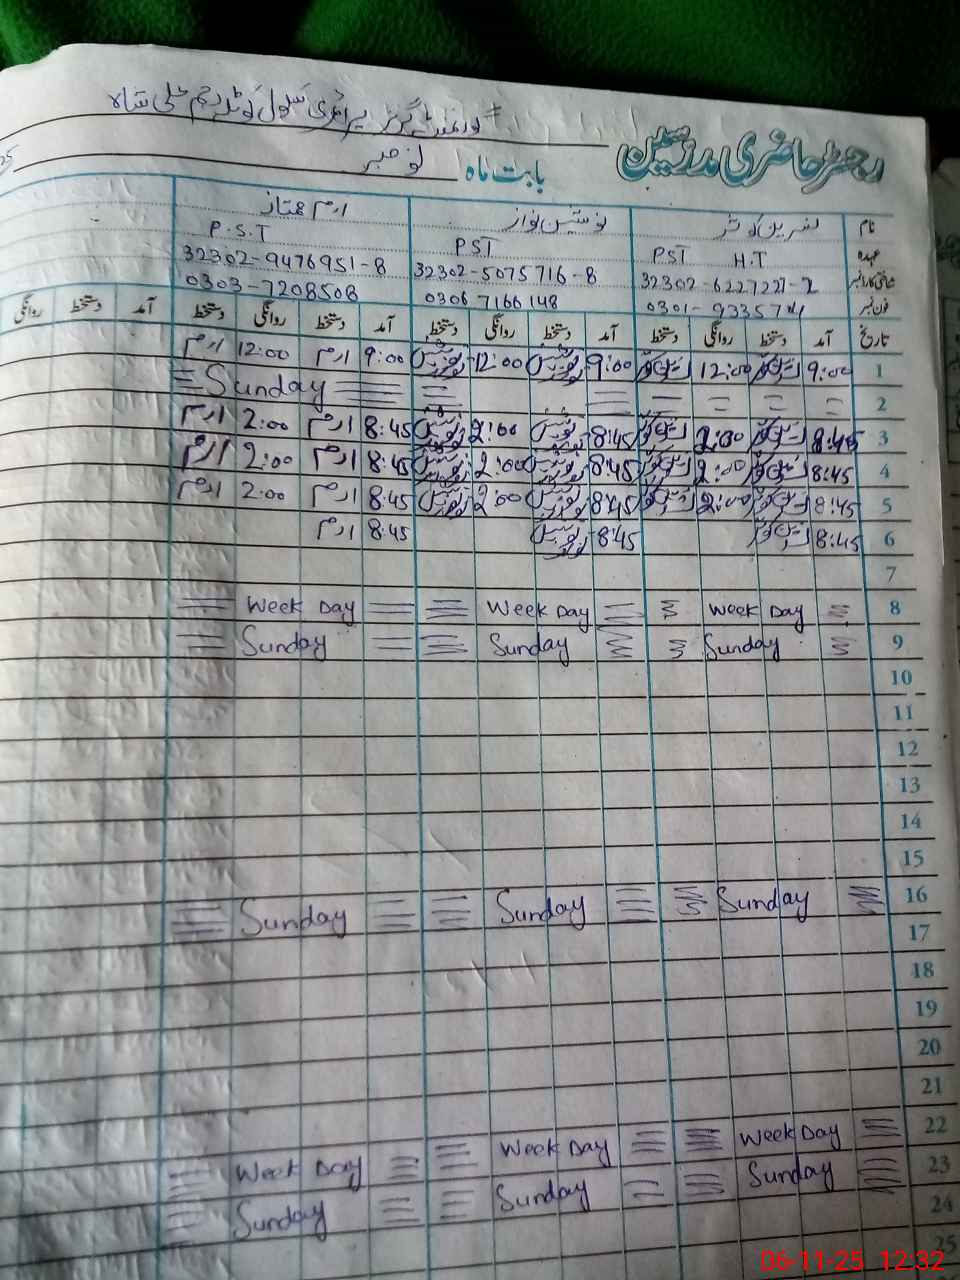 گورنمنٹ گرلز پرائمری سکول کوٹلہ رحم علی شاہ
رجسٹر حاضری مدرسین
بابت ماہ نومبر
نام نسرین کوثر نوشین نواز ارم ممتاز
عہدہ H.T PST PST P.S.T
شناختی کارڈ نمبر 32302-6227227-2 32302-5075716-8 32302-9476951-8
فون نمبر 0306 7166148 0303-7208508
تاریخ آمد دستخط روانگی دستخط آمد دستخط روانگی دستخط آمد دستخط روانگی دستخط آمد دستخط روانگی
1 9:00 12:00 9:00 12:00 9:00 ارم 12:00 ارم
2 Sunday
3 8:45 2:00 8:45 2:00 8:45 ارم 2:00 ارم
4 8:45 2:00 8:45 2:00 8:45 ارم 2:00 ارم
5 8:45 2:00 8:45 2:00 8:45 ارم 2:00 ارم
6 8:45 8:45 8:45 ارم
7
8 Week Day Week Day Week Day
9 Sunday Sunday Sunday
10
11
12
13
14
15
16 Sunday Sunday Sunday
17
18
19
20
21
22 Week Day Week Day Week Day
23 Sunday Sunday Sunday
24
25
06-11-25 12:32